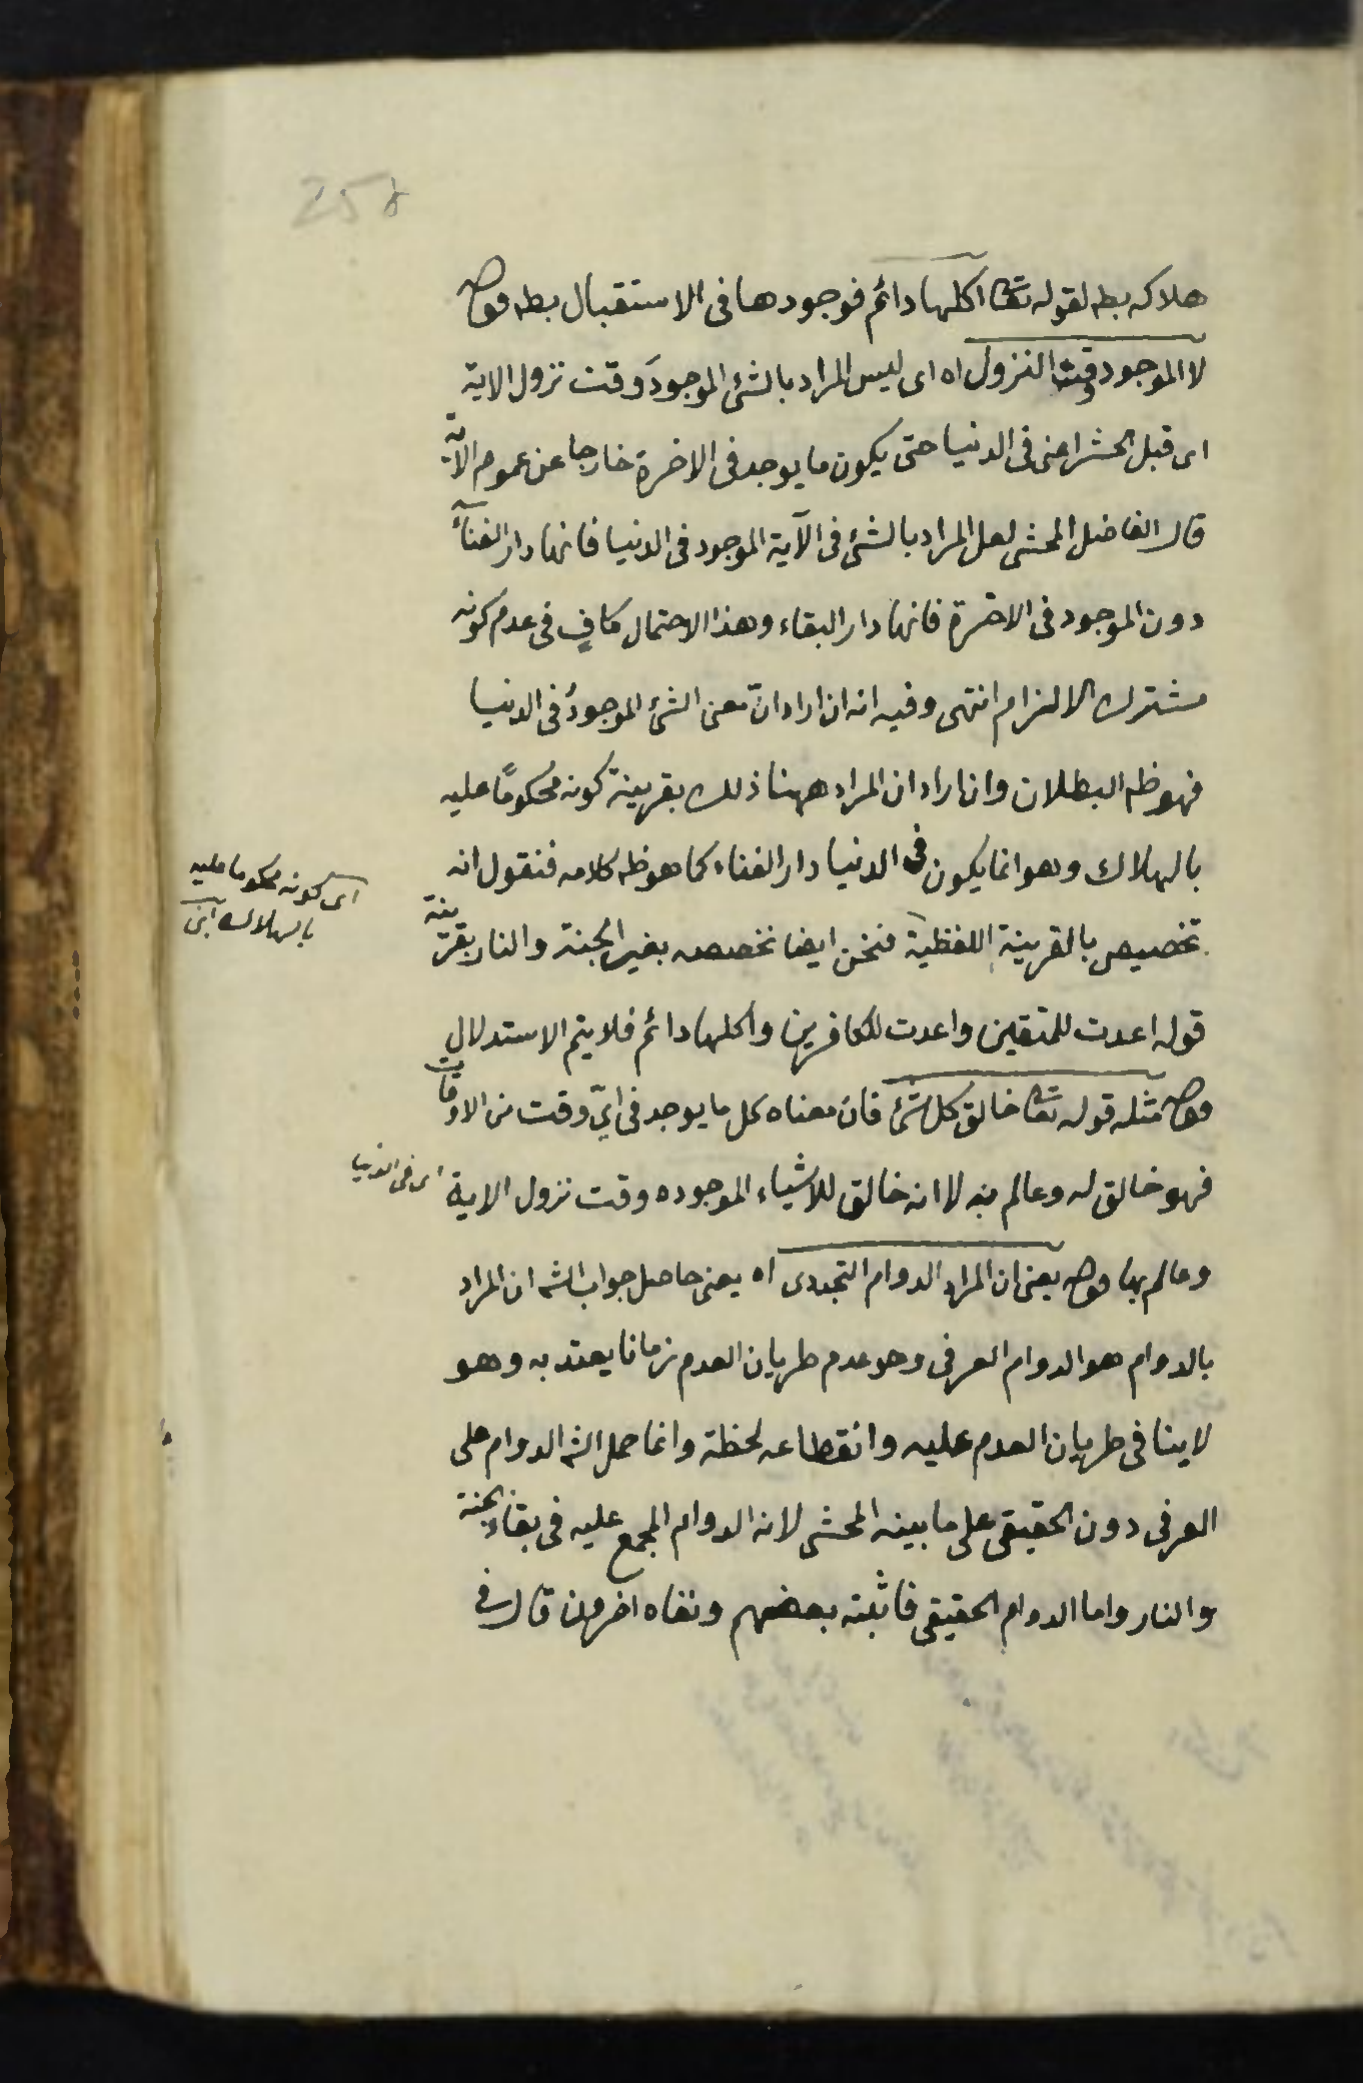 258
هلاكه بط لقوله تعا اكلها دائم فوجودها فى الاستقبال بط قوله
لا الموجود وقت النزول اه اى ليس المراد بالشئ الموجود وقت نزول الاية
اى قبل الحشر اعنى فى الدنيا حتى يكون ما يوجد فى الاخرة خارجا عن عموم الآية
قال الفاضل المحشى لعل المراد بالشئ فى الآية الموجود فى الدنيا فانها دار الفنآء
دون الموجود فى الاخرة فانها دار البقاء وهذا الاحتمال كافٍ فى عدم كونه
مشترك الالزام انتهى وفيه انه ان اراد انّ معنى الشئ الموجودُ فى الدنيا
فهو ظ البطلان وان اراد ان المراد ههنا ذلك بقرينة كونه محكومًا عليه
بالهلاك وهو انما يكون فى الدنيا دار الفناء كما هو ظ كلامه فنقول انه
اى كونه محكوما عليه
بالهلاك
تخصيص بالقرينة اللفظية فنحن ايضا نخصصه بغير الجنة والنار بقرينة
قوله اعدت للمتقين واعدت للكافرين واكلها دائم فلا يتم الاستدلال
قوله مثله قوله تعا خالق كل شئ فان معناه كل ما يوجد فى ايّ وقت من الاوقات
فهو خالق له وعالم به لا انه خالق للاشياء الموجوده وقت نزول الاية
اى فى الدنيا
وعالم بها قوله يعنى ان المراد الدوام التجددى اه يعنى حاصل جواب الش ان المراد
بالدوام هو الدوام العرفى وهو عدم طريان العدم زمانا يعتد به وهو
لا ينافى طريان العدم عليه وانقطاعه لحظة وانما حمل الش الدوام على
العرفى دون الحقيقى على ما بينه المحشى لانه الدوام المجمع عليه فى بقاء الجنة
والنار واما الدوام الحقيقى فاثبته بعضهم ونفاه اخرون قال فى